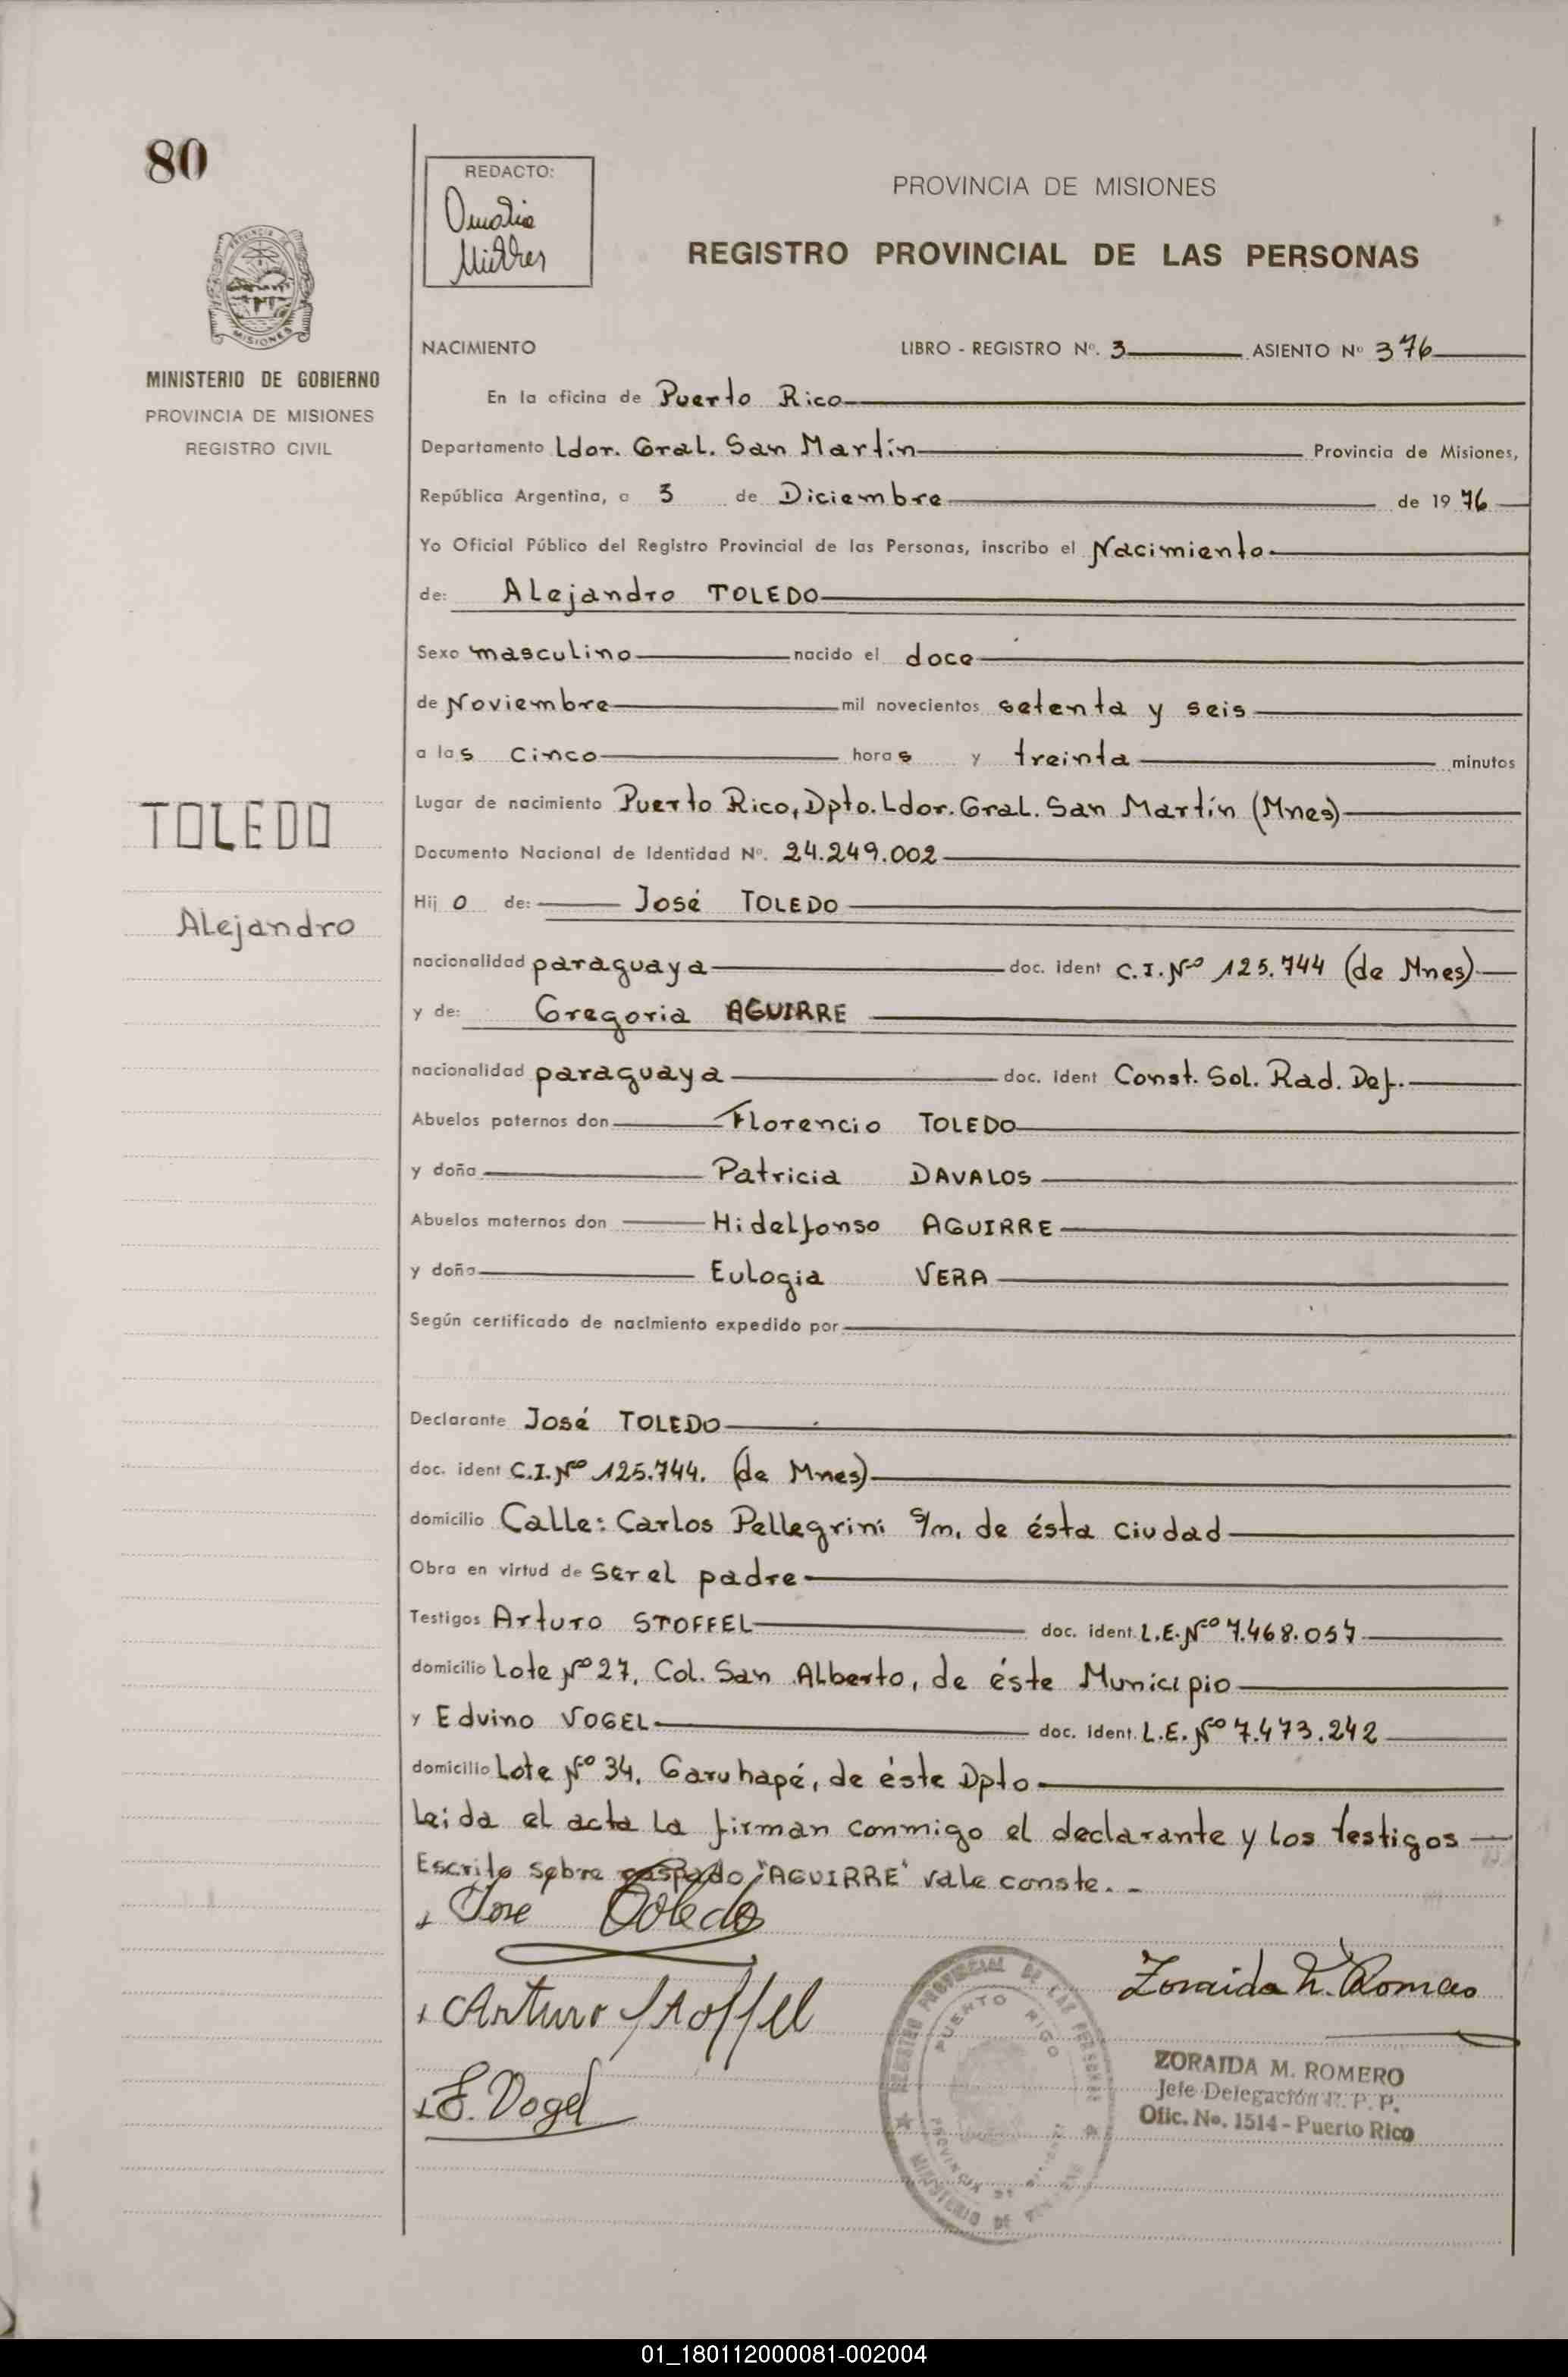 80
REDACTO:
PROVINCIA DE MISIONES
REGISTRO PROVINCIAL DE LAS PERSONAS
MISIONES
MINISTERIO DE GOBIERNO
PROVINCIA DE MISIONES
REGISTRO CIVIL
TOLEDO
Alejandro
NACIMIENTO LIBRO - REGISTRO Nº. 3 ASIENTO Nº 376
En la oficina de Puerto Rico
Departamento Ldor. Gral. San Martín Provincia de Misiones,
República Argentina, a 3 de Diciembre de 1976
Yo Oficial Público del Registro Provincial de las Personas, inscribo el Nacimiento
de: Alejandro TOLEDO
Sexo masculino nacido el doce
de Noviembre mil novecientos setenta y seis
a las cinco horas y treinta minutos
Lugar de nacimiento Puerto Rico, Dpto. Ldor. Gral. San Martín (Mnes)
Documento Nacional de Identidad Nº. 24.249.002
Hijo de: José TOLEDO
nacionalidad paraguaya doc. ident C.I.Nº 125.744 (de Mnes)
y de: Gregoria AGUIRRE
nacionalidad paraguaya doc. ident Const. Sol. Rad. Def.
Abuelos paternos don Florencio TOLEDO
y doña Patricia DAVALOS
Abuelos maternos don Hidelfonso AGUIRRE
y doña Eulogia VERA
Según certificado de nacimiento expedido por
Declarante José TOLEDO
doc. ident C.I.Nº 125.744. (de Mnes)
domicilio Calle: Carlos Pellegrini s/m. de ésta ciudad
Obra en virtud de ser el padre
Testigos Arturo STOFFEL doc. ident. L.E.Nº 7.468.057
domicilio Lote Nº 27, Col. San Alberto, de éste Municipio
y Edvino VOGEL doc. ident. L.E. Nº 7.473.242
domicilio Lote Nº 34, Garuhapé, de éste Dpto
Leida el acta la firman conmigo el declarante y los testigos
Escrito sobre raspado "AGUIRRE" vale conste. -
Jose Toledo
Arturo Stoffel
E. Vogel
Zoraida M. Romero
REGISTRO PROVINCIAL DE LAS PERSONAS
PUERTO RICO
PROVINCIA DE MISIONES
MINISTERIO DE GOBIERNO
ZORAIDA M. ROMERO
Jefe Delegación R. P. P.
Ofic. No. 1514 - Puerto Rico
01_180112000081-002004